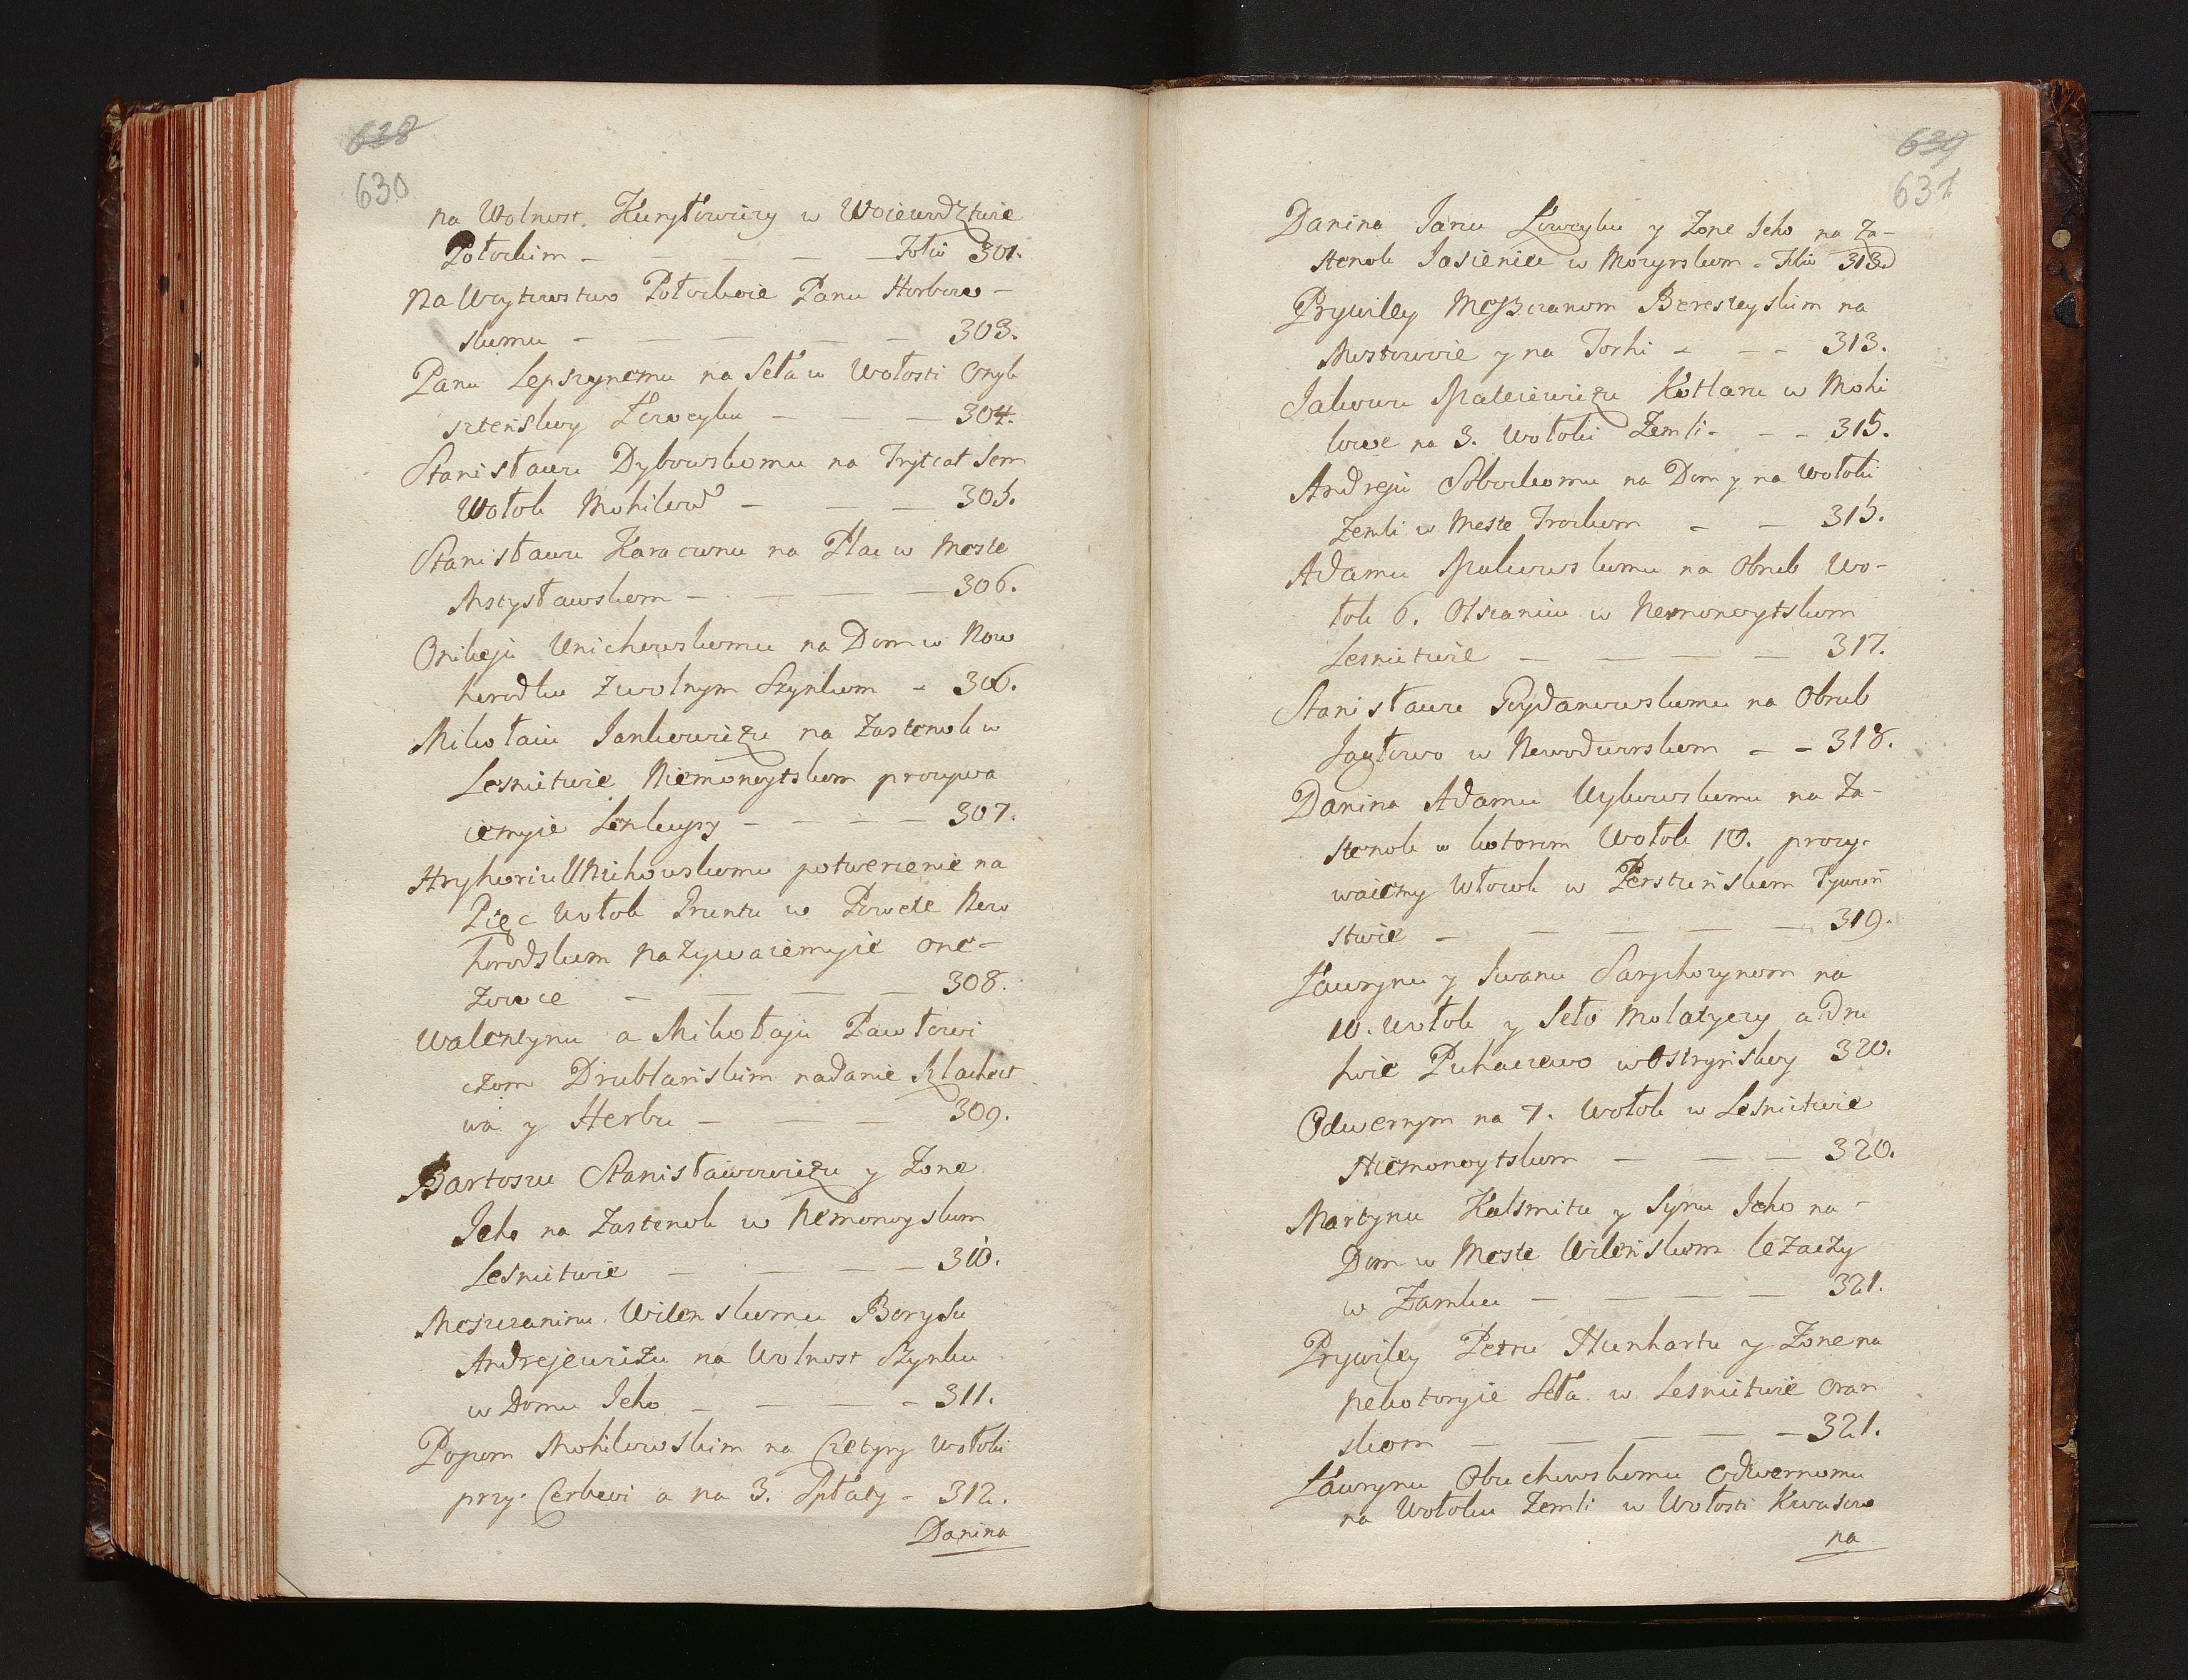 638
630
na Wolnost. Kuryłowiczy w Woiewodztwie
Połockim - - - - - Folio 301.
Na Woytowstwo Połockoie Panu Korbow-
skomu - - - - - 303.
Panu Lepszynemu na Seła w Wołosti Onyk
sztenskoy Łowcyku - - - 304.
Stanisławu Dybowskomu na Trytcat Sem
Wołok Mohilow - - - 305.
Stanisławu Karacwnu na Plac w Meste
Mstysławskom - - - - 306.
Onikeju Unichowskomu na Dom w Now
horodku Zwolnym Szynkom - 306.
Mikołaiu Jankowiczu na Zastenok w
Lesnictwie Niemonoytskom prozywa
iemyie Lenkupy - - - - 307.
Hryhoriu Unichowskomu potwerzenie na
Pięc Wołok Gruntu w Powete Now
horodskom nazywaiemyie one-
Zowce - - - - - 308.
Walentynu a Mikołaju Pawłowi
czom Drublanskim nadanie Szlachect
wa y Herbu - - - 309.
Bartoszu Stanisławowiczu y Zone
Jeho na Zastenok w Nemonoyskom
Lesnictwie - - - - 310.
Mesczaninu Wilenskomu Borysu
Andrejewiczu na Wolnost Szynku
w Domu Jeho - - - - 311.
Popom Mohilowskim na Czetyry Wołoki
przy Cerkwi a na 3. Spłaty - 312.
Danina
639
631
Danina Janu Łowcyku y Zone Jeho na Za-
stenok Jasienice w Mozyrskom - Folio 313
Prywiley Meszczanom Beresteyskim na
Mostowoie y na Torhi - - - 313.
Jakowu Mateiewiczu Kotlaru w Mohi
lowe na 3. Wołoki Zemli - - - 315.
Andreju Sobockomu na Dom y na Wołoki
Zemli w Meste Trockom - - 315.
Adamu Makowskomu na Obrub Wo-
łok 6. Olszaniu w Nemonoytskom
Lesnictwie - - - - 317.
Stanisławu Poydanowskomu na Obrub
Jagłowo w Nowodworskom - - 318.
Danina Adamu Wykowskomu na Za-
stenok w kotorom Wołok 10. prozy-
waiemy Włowk w Perstunskom Tywun
stwie - - - - - 319.
Ławrynu y Iwanu Saryhozynom na
10. Wołok y Seło Molatyczy a Dru
hoie Puhaczewo w Ostrynskoy 320.
Odwernym na 7. Wołok w Lesnictwie
Niemonoytskom - - - 320.
Martynu Kulsmitu y Synu Jeho na-
Dom w Meste Wilenskom lezaczy
w Zamku - - - - 321.
Prywiley Petru Hunhartu y Zone na
nekotoryie Seła w Lesnictwie Oran
skom - - - - - 321.
Ławrynu Obuchowskomu Odwernomu
na Wołoku Zemli w Wołosti Kwasow
na